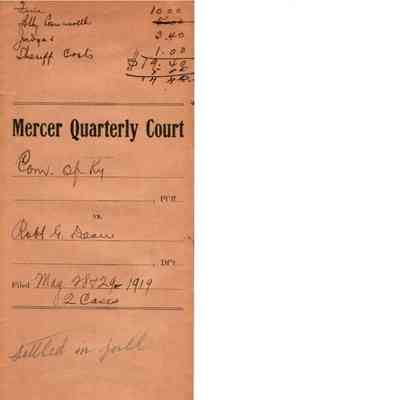 Fine 10.00
Atty Comwealth 5.00
Judges 3.40
Sheriff Costs 1.00
$19.40
5 00
14 40
Mercer Quarterly Court
Com. of Ky
, Plff.
vs.
Robt G. Dean
, Dft.
Filed May 28 & 29 1919
2 Cases
Settled in full